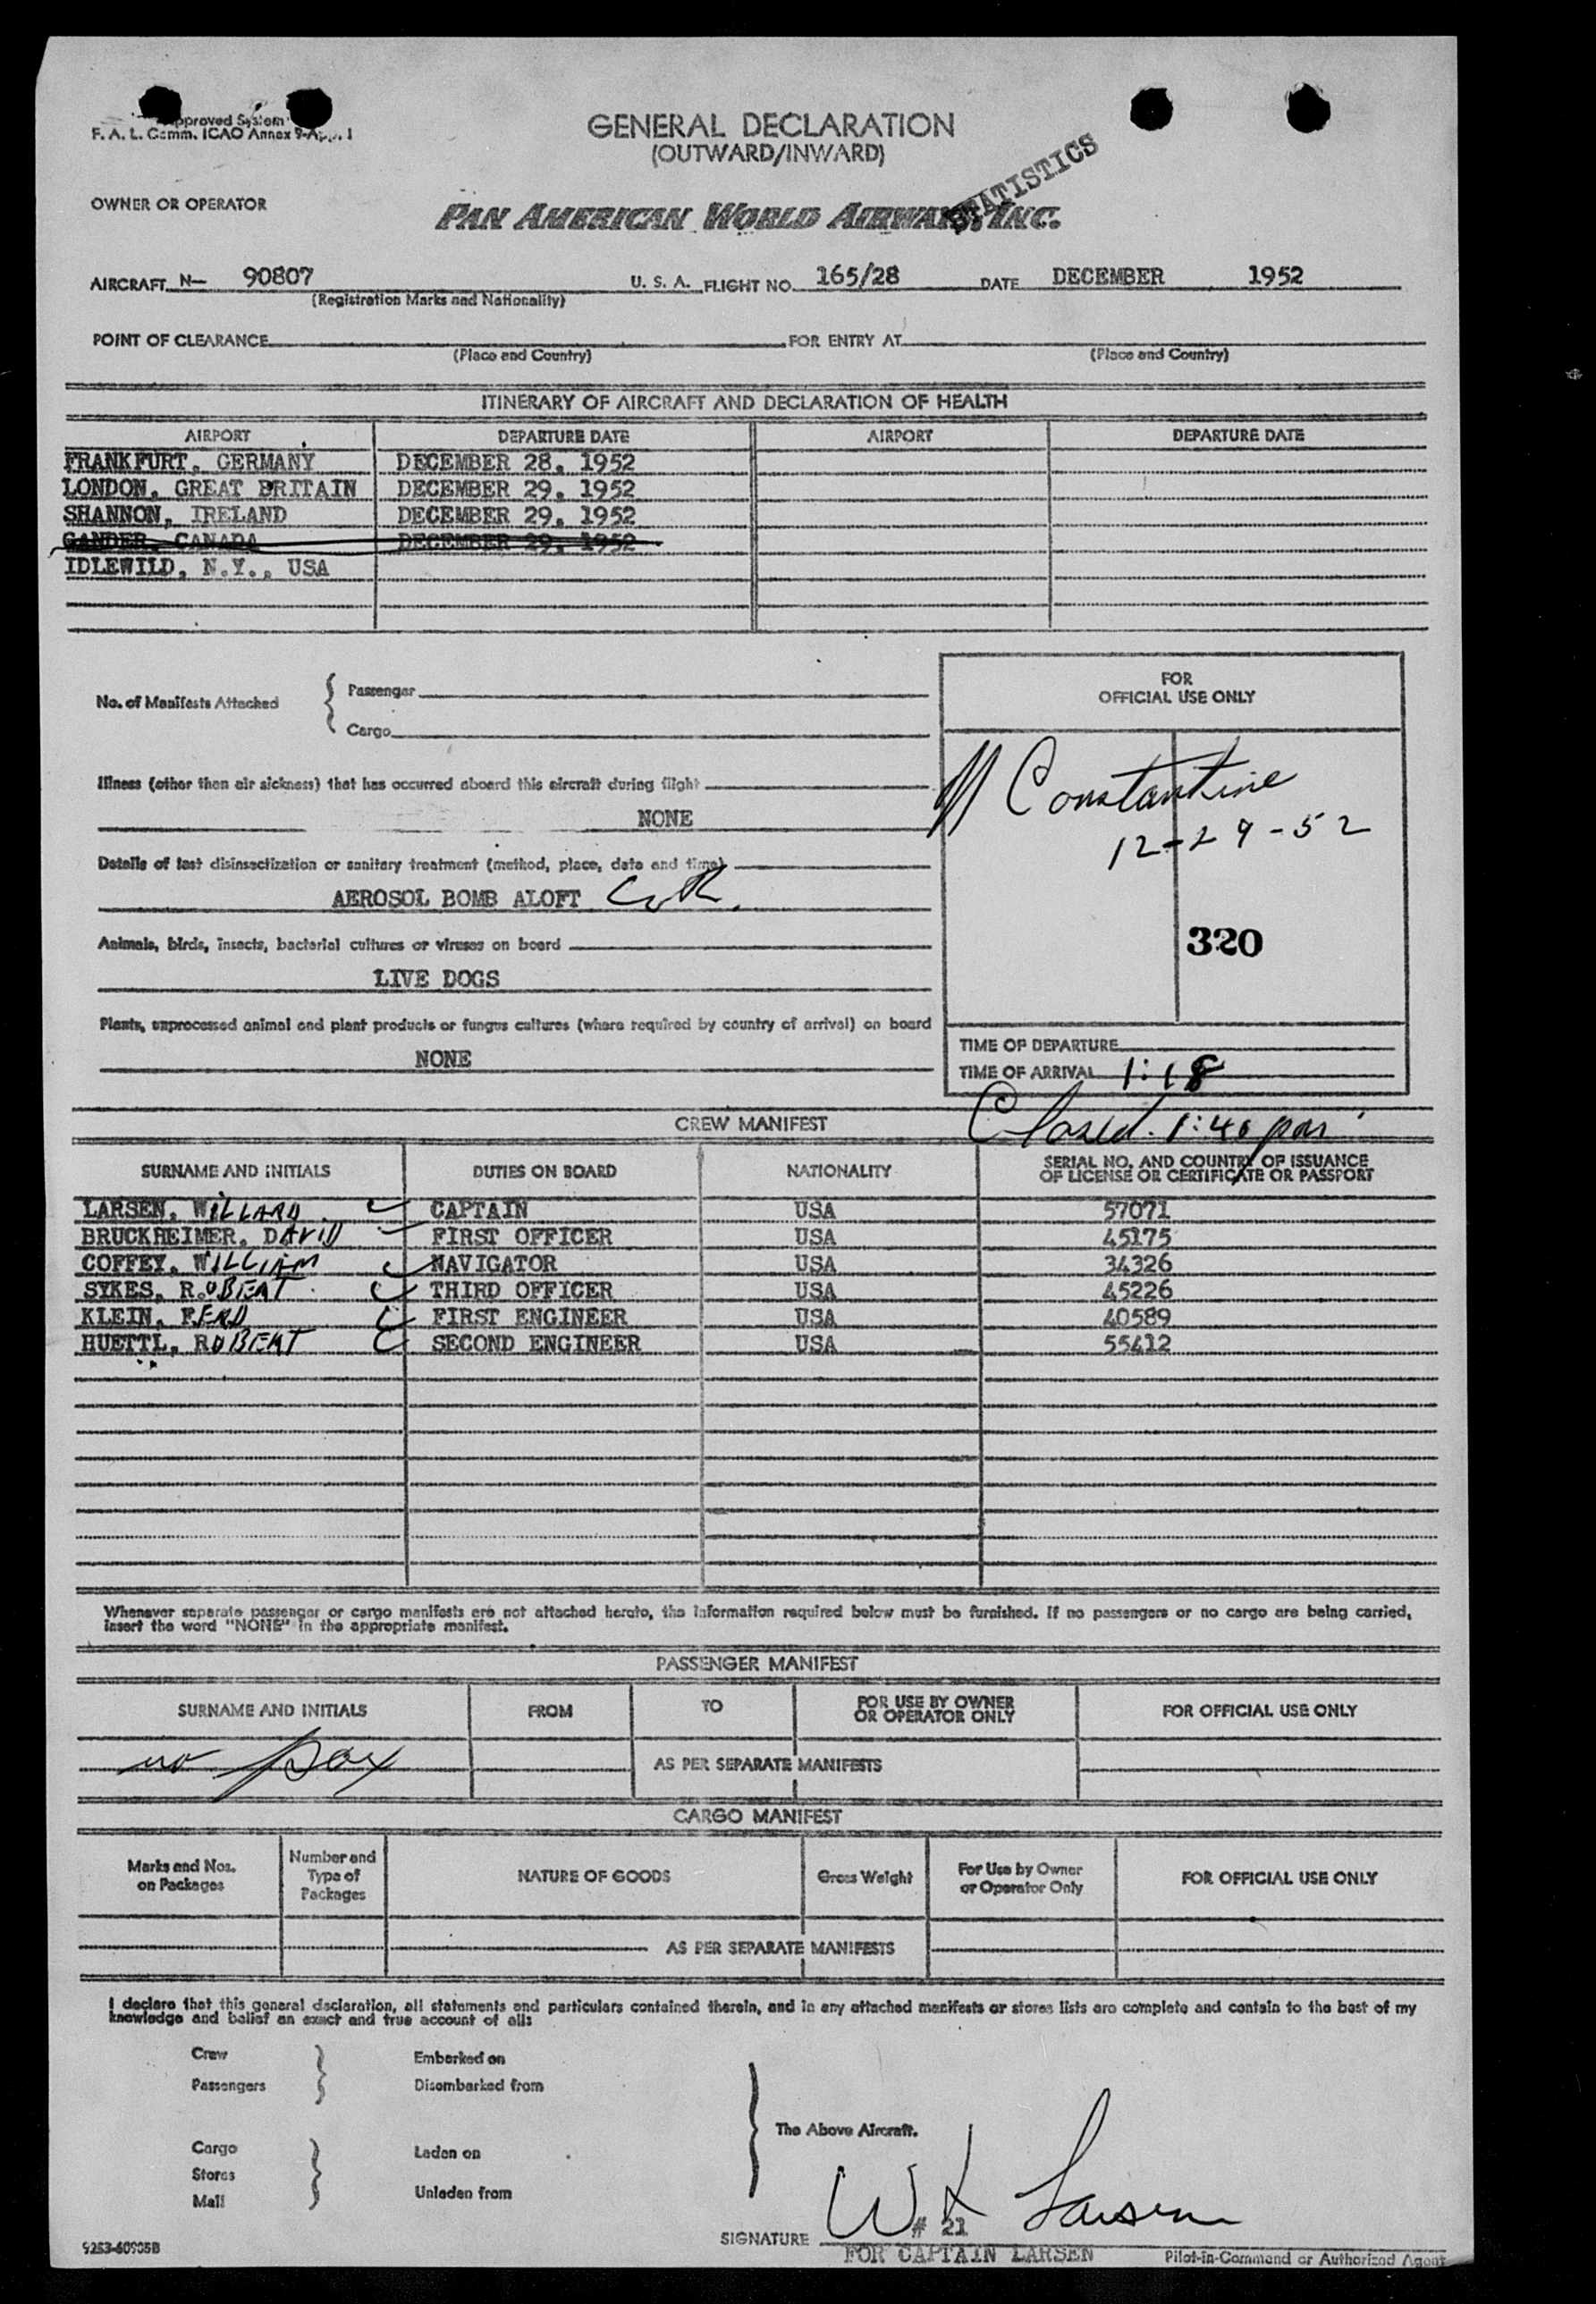 Approved System
F. A. L. Comm. ICAO Annex 9-App. 1
GENERAL DECLARATION
(OUTWARD/INWARD)
STATISTICS
OWNER OR OPERATOR
PAN AMERICAN WORLD AIRWAYS, INC.
AIRCRAFT N— 90807 U. S. A. FLIGHT NO. 165/28 DATE DECEMBER 1952
(Registration Marks and Nationality)
POINT OF CLEARANCE FOR ENTRY AT
(Place and Country) (Place and Country)
ITINERARY OF AIRCRAFT AND DECLARATION OF HEALTH
AIRPORT DEPARTURE DATE AIRPORT DEPARTURE DATE
FRANKFURT, GERMANY DECEMBER 28, 1952
LONDON, GREAT BRITAIN DECEMBER 29, 1952
SHANNON, IRELAND DECEMBER 29, 1952
GANDER, CANADA DECEMBER 29, 1952
IDLEWILD, N.Y., USA
No. of Manifests Attached
Passenger
Cargo
FOR
OFFICIAL USE ONLY
Illness (other than air sickness) that has occurred aboard this aircraft during flight
NONE
Constantine
12-29-52
Details of last disinsectization or sanitary treatment (method, place, date and time)
AEROSOL BOMB ALOFT
320
Animals, birds, insects, bacterial cultures or viruses on board
LIVE DOGS
Plants, unprocessed animal and plant products or fungus cultures (where required by country of arrival) on board
NONE
TIME OF DEPARTURE
TIME OF ARRIVAL 1:18
Closed. 1:40 pm
CREW MANIFEST
SURNAME AND INITIALS DUTIES ON BOARD NATIONALITY SERIAL NO. AND COUNTRY OF ISSUANCE
OF LICENSE OR CERTIFICATE OR PASSPORT
LARSEN, WILLARD CAPTAIN USA 57071
BRUCKHEIMER, DAVID FIRST OFFICER USA 45175
COFFEY, WILLIAM NAVIGATOR USA 34326
SYKES, ROBERT THIRD OFFICER USA 45226
KLEIN, FERD FIRST ENGINEER USA 40589
HUETTL, ROBERT SECOND ENGINEER USA 55412
Whenever separate passenger or cargo manifests are not attached hereto, the information required below must be furnished. If no passengers or no cargo are being carried,
insert the word "NONE" in the appropriate manifest.
PASSENGER MANIFEST
SURNAME AND INITIALS FROM TO FOR USE BY OWNER
OR OPERATOR ONLY FOR OFFICIAL USE ONLY
no pax AS PER SEPARATE MANIFESTS
CARGO MANIFEST
Marks and Nos.
on Packages
Number and
Type of
Packages
NATURE OF GOODS Gross Weight For Use by Owner
or Operator Only FOR OFFICIAL USE ONLY
AS PER SEPARATE MANIFESTS
I declare that this general declaration, all statements and particulars contained therein, and in any attached manifests or stores lists are complete and contain to the best of my
knowledge and belief an exact and true account of all:
Crew Embarked on
Passengers Disembarked from
The Above Aircraft.
Cargo Laden on
Stores
Mail Unladen from
W Larsen
# 21
SIGNATURE
FOR CAPTAIN LARSEN Pilot-in-Command or Authorized Agent
9253-60905B